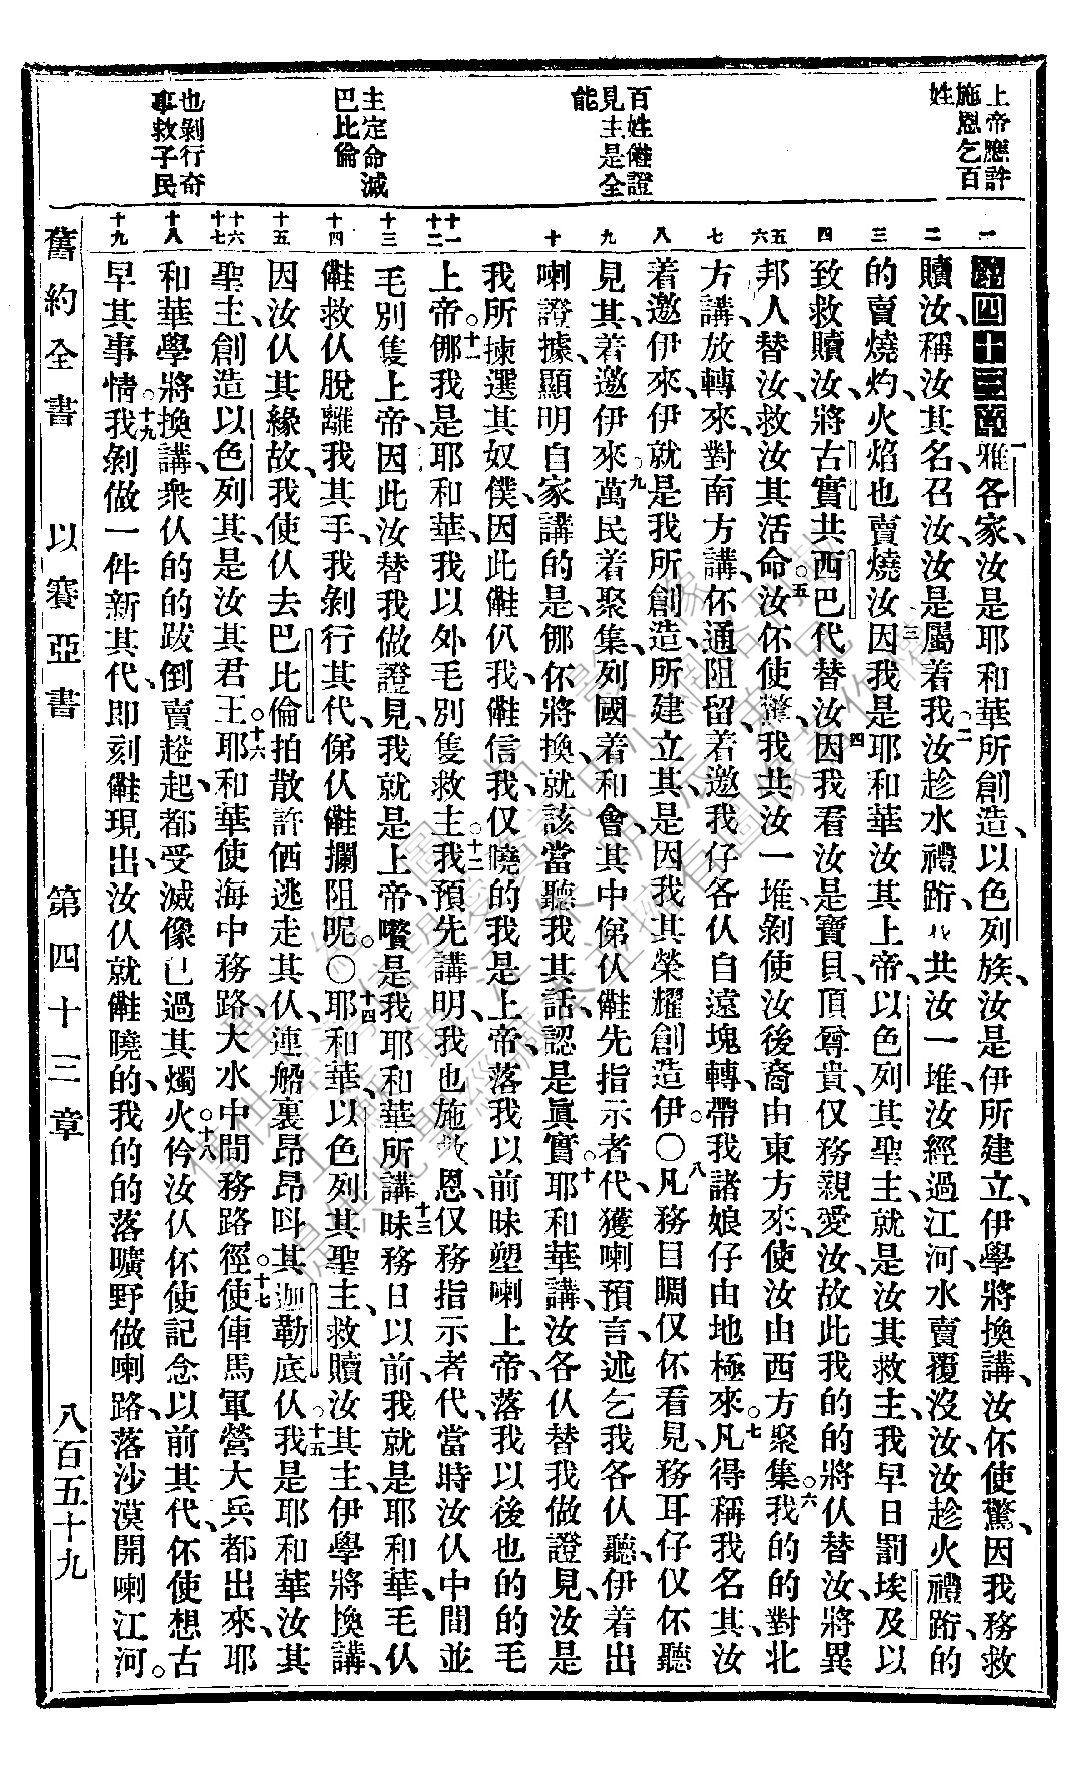 上帝應許
施恩乞百
姓
百姓㒰證
見主是全
能
主定命滅
巴比倫
也剝行奇
事救子民
一 二 三 四 五 六 七 八 九 十 十一 十二 十三 十四 十五 十六 十七 十八 十九
第四十三章雅各家、汝是耶和華所創造、以色列族、汝是伊所建立、伊學將換講、汝伓使驚、因我務救
贖汝、稱汝其名、召汝、汝是屬着我。二汝趁水禮跸、我共汝一堆、汝經過江河、水賣覆沒汝、汝趁火禮跸、的
的賣燒灼、火焰也賣燒汝。三因我是耶和華汝其上帝、以色列其聖主、就是汝其救主、我早日罰埃及、以
致救贖汝、將古實共西巴代替汝。四因我看汝是寶貝、頂尊貴、仅務親愛汝、故此我的的將仈替汝、將異
邦人替汝、救汝其活命。五汝伓使驚、我共汝一堆、剝使汝後裔由東方來、使汝由西方聚集。六我的的對北
方講、放轉來、對南方講、伓通阻留、着邀我仔各仈自遠塊轉、帶我諸娘仔由地極來。七凡得稱我名其、汝
着邀伊來、伊就是我所創造、所建立其、是因我其榮耀創造伊。〇八凡務目睭仅伓看見、務耳仔仅伓聽
見其、着邀伊來。九萬民着聚集、列國着和會、其中俤仈㒰先指示者代、獲喇預言、述乞我各仈聽、伊着出
喇證據、顯明自家講的是、㑚伓將換、就該當聽我其話、認是眞實。十耶和華講、汝各仈替我做證見、汝是
我所揀選其奴僕、因此㒰仈我、㒰信我、仅曉的我是上帝、落我以前昧塑喇上帝、落我以後也的的毛
上帝。十一㑚我是耶和華、我以外毛別隻救主。十二我預先講明、我也施救恩、仅務指示者代、當時汝仈中間並
毛別隻上帝、因此汝替我做證見、我就是上帝、嚽是我耶和華所講。十三昧務日以前、我就是耶和華、毛仈
㒰救仈脫離我其手、我剝行其代、俤仈㒰攔阻呢。〇十四耶和華以色列其聖主、救贖汝其主、伊學將換講、
因汝仈其緣故、我使仈去巴比倫拍散許価逃走其仈、連船裏昂昂呌其迦勒底仈。十五我是耶和華、汝其
聖主、創造以色列其、是汝其君王。十六耶和華使海中務路、大水中間務路徑。十七使俥馬軍營大兵都出來、耶
和華學將換講、衆仈的的跋倒賣趒起、都受滅像已過其燭火。十八仱汝仈伓使記念以前其代、伓使想古
早其事情。十九我剝做一件新其代、即刻㒰現出、汝仈就㒰曉的、我的的落曠野做喇路、落沙漠開喇江河。
舊約全書 以賽亞書 第四十三章 八百五十九